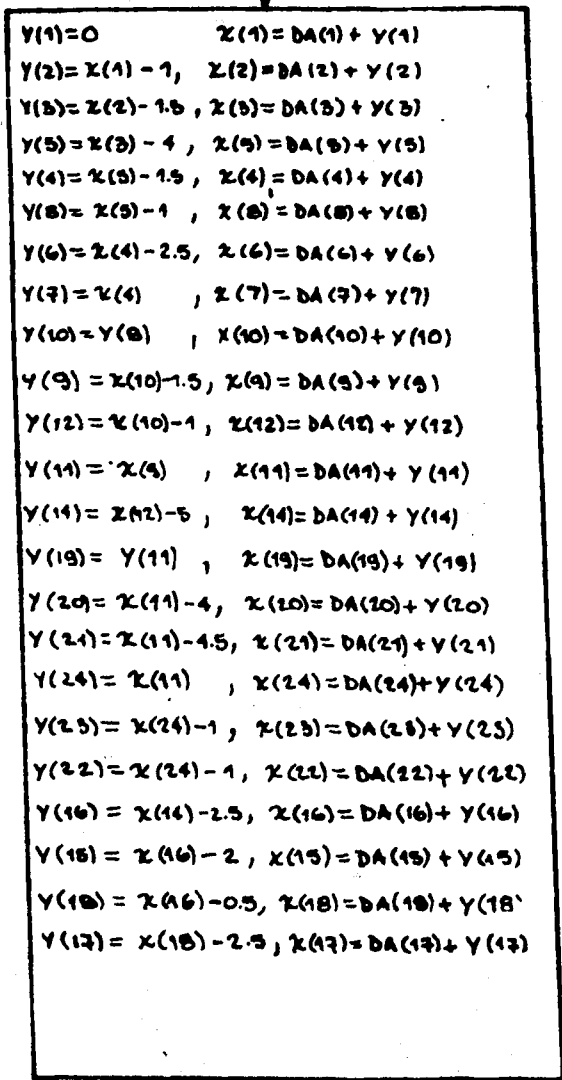 Y(1)=0 X(1)=DA(1)+Y(1)
Y(2)=X(1)-1, X(2)=DA(2)+Y(2)
Y(3)=X(2)-1.5, X(3)=DA(3)+Y(3)
Y(5)=X(3)-4, X(5)=DA(5)+Y(5)
Y(4)=X(5)-1.5, X(4)=DA(4)+Y(4)
Y(8)=X(5)-1, X(8)=DA(8)+Y(8)
Y(6)=X(4)-2.5, X(6)=DA(6)+Y(6)
Y(7)=X(6), X(7)=DA(7)+Y(7)
Y(10)=Y(8), X(10)=DA(10)+Y(10)
Y(9)=X(10)-1.5, X(9)=DA(9)+Y(9)
Y(12)=X(10)-1, X(12)=DA(12)+Y(12)
Y(11)=X(9), X(11)=DA(11)+Y(11)
Y(14)=X(12)-5, X(14)=DA(14)+Y(14)
Y(19)=Y(11), X(19)=DA(19)+Y(19)
Y(20)=X(11)-4, X(20)=DA(20)+Y(20)
Y(21)=X(11)-4.5, X(21)=DA(21)+Y(21)
Y(24)=X(11), X(24)=DA(24)+Y(24)
Y(23)=X(24)-1, X(23)=DA(23)+Y(23)
Y(22)=X(24)-1, X(22)=DA(22)+Y(22)
Y(16)=X(14)-2.5, X(16)=DA(16)+Y(16)
Y(15)=X(16)-2, X(15)=DA(15)+Y(15)
Y(18)=X(16)-0.5, X(18)=DA(18)+Y(18
Y(17)=X(18)-2.5, X(17)=DA(17)+Y(17)